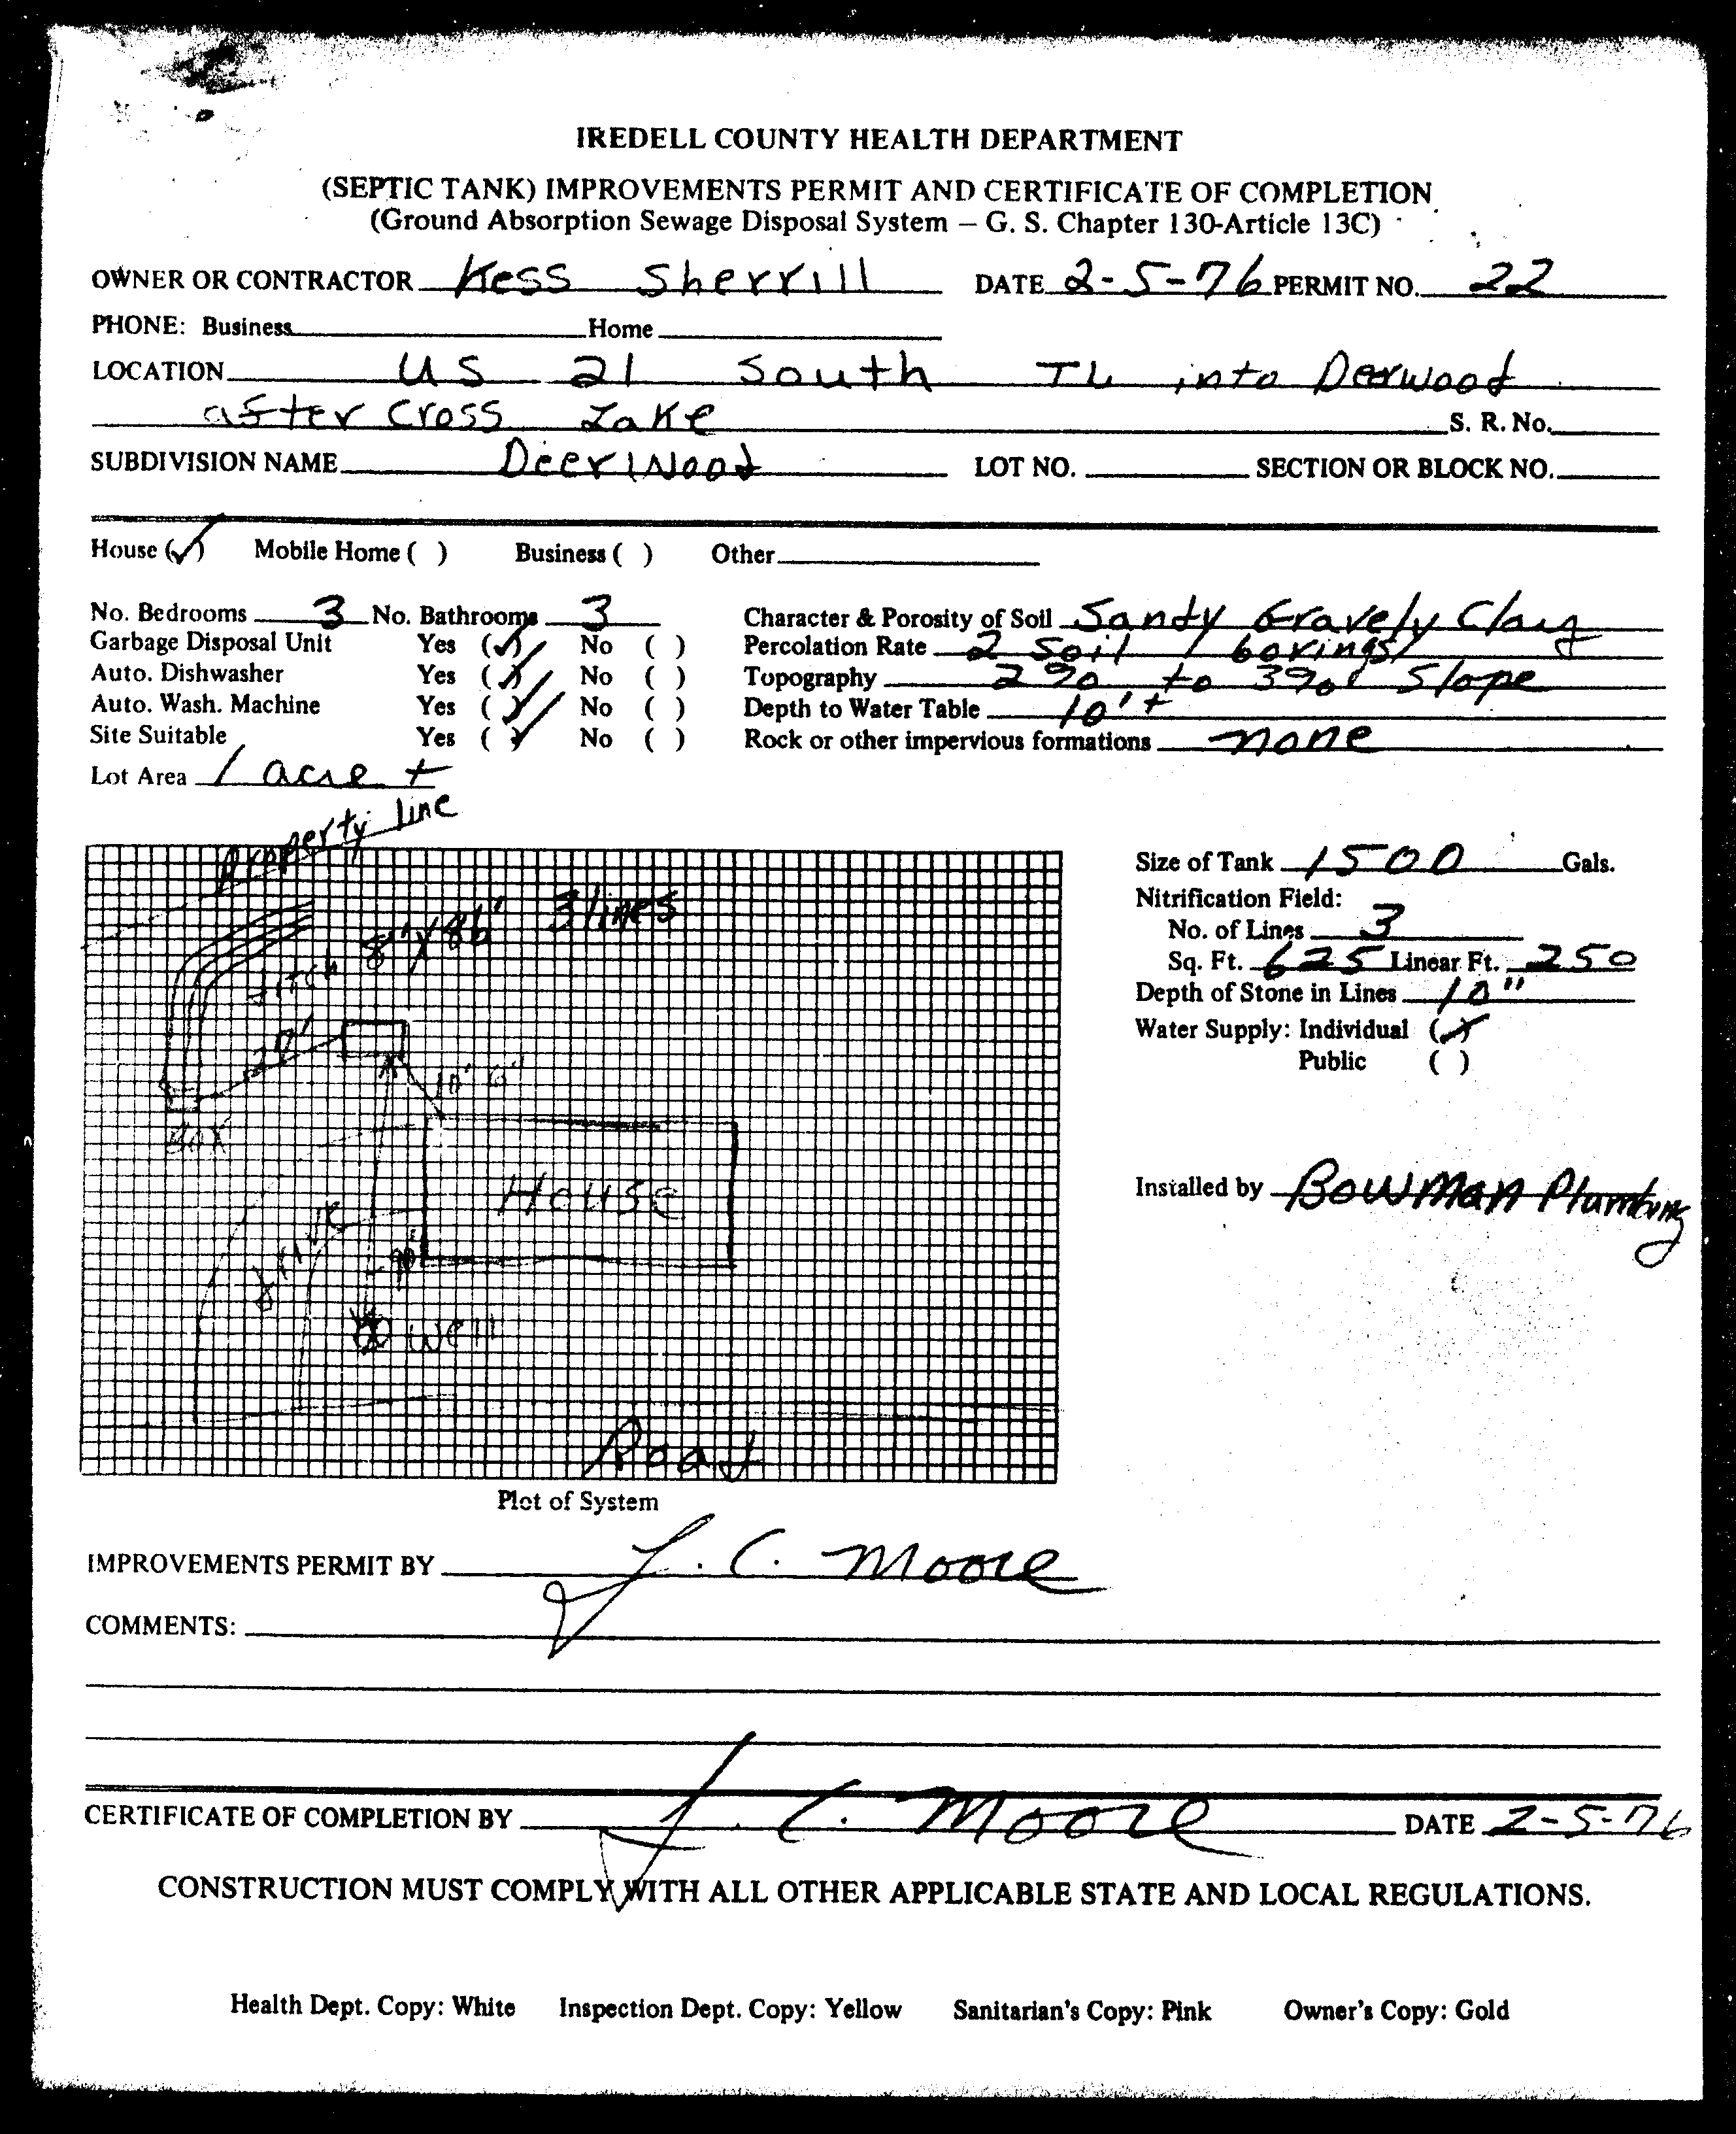 IREDELL COUNTY HEALTH DEPARTMENT
(SEPTIC TANK) IMPROVEMENTS PERMIT AND CERTIFICATE OF COMPLETION
(Ground Absorption Sewage Disposal System — G. S. Chapter 130-Article 13C)
OWNER OR CONTRACTOR Kess Sherrill DATE 2-5-76 PERMIT NO. 22
PHONE: Business Home
LOCATION US 21 South TL into Deerwood
after cross Lake S. R. No.
SUBDIVISION NAME DeerWood LOT NO. SECTION OR BLOCK NO.
House (✓) Mobile Home ( ) Business ( ) Other
No. Bedrooms 3 No. Bathrooms 3 Character & Porosity of Soil Sandy Gravely Clay
Garbage Disposal Unit Yes (✓) No ( ) Percolation Rate 2 Soil borings
Auto. Dishwasher Yes (✓) No ( ) Topography 2% to 3% Slope
Auto. Wash. Machine Yes (✓) No ( ) Depth to Water Table 10'+
Site Suitable Yes (✓) No ( ) Rock or other impervious formations none
Lot Area 1 acre +
Property line
8" x 86' 3 lines
ditch
20'
10' 6"
Box
House
drive
90'
well
Road
Size of Tank 1500 Gals.
Nitrification Field:
No. of Lines 3
Sq. Ft. 625 Linear Ft. 250
Depth of Stone in Lines 10"
Water Supply: Individual (✓)
Public ( )
Installed by Bowman Plumbing
Plot of System
IMPROVEMENTS PERMIT BY J. C. Moore
COMMENTS:
CERTIFICATE OF COMPLETION BY J. C. Moore DATE 2-5-76
CONSTRUCTION MUST COMPLY WITH ALL OTHER APPLICABLE STATE AND LOCAL REGULATIONS.
Health Dept. Copy: White Inspection Dept. Copy: Yellow Sanitarian's Copy: Pink Owner's Copy: Gold